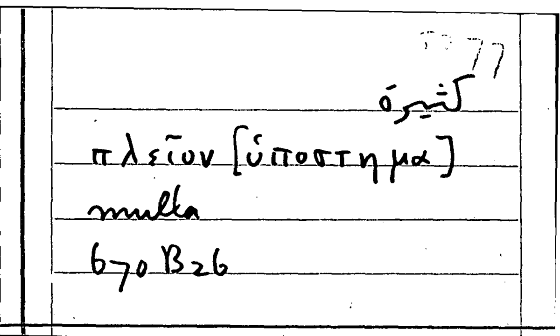 77
كثيرة
πλεῖον [ὑπόστημα]
multa
670 B26